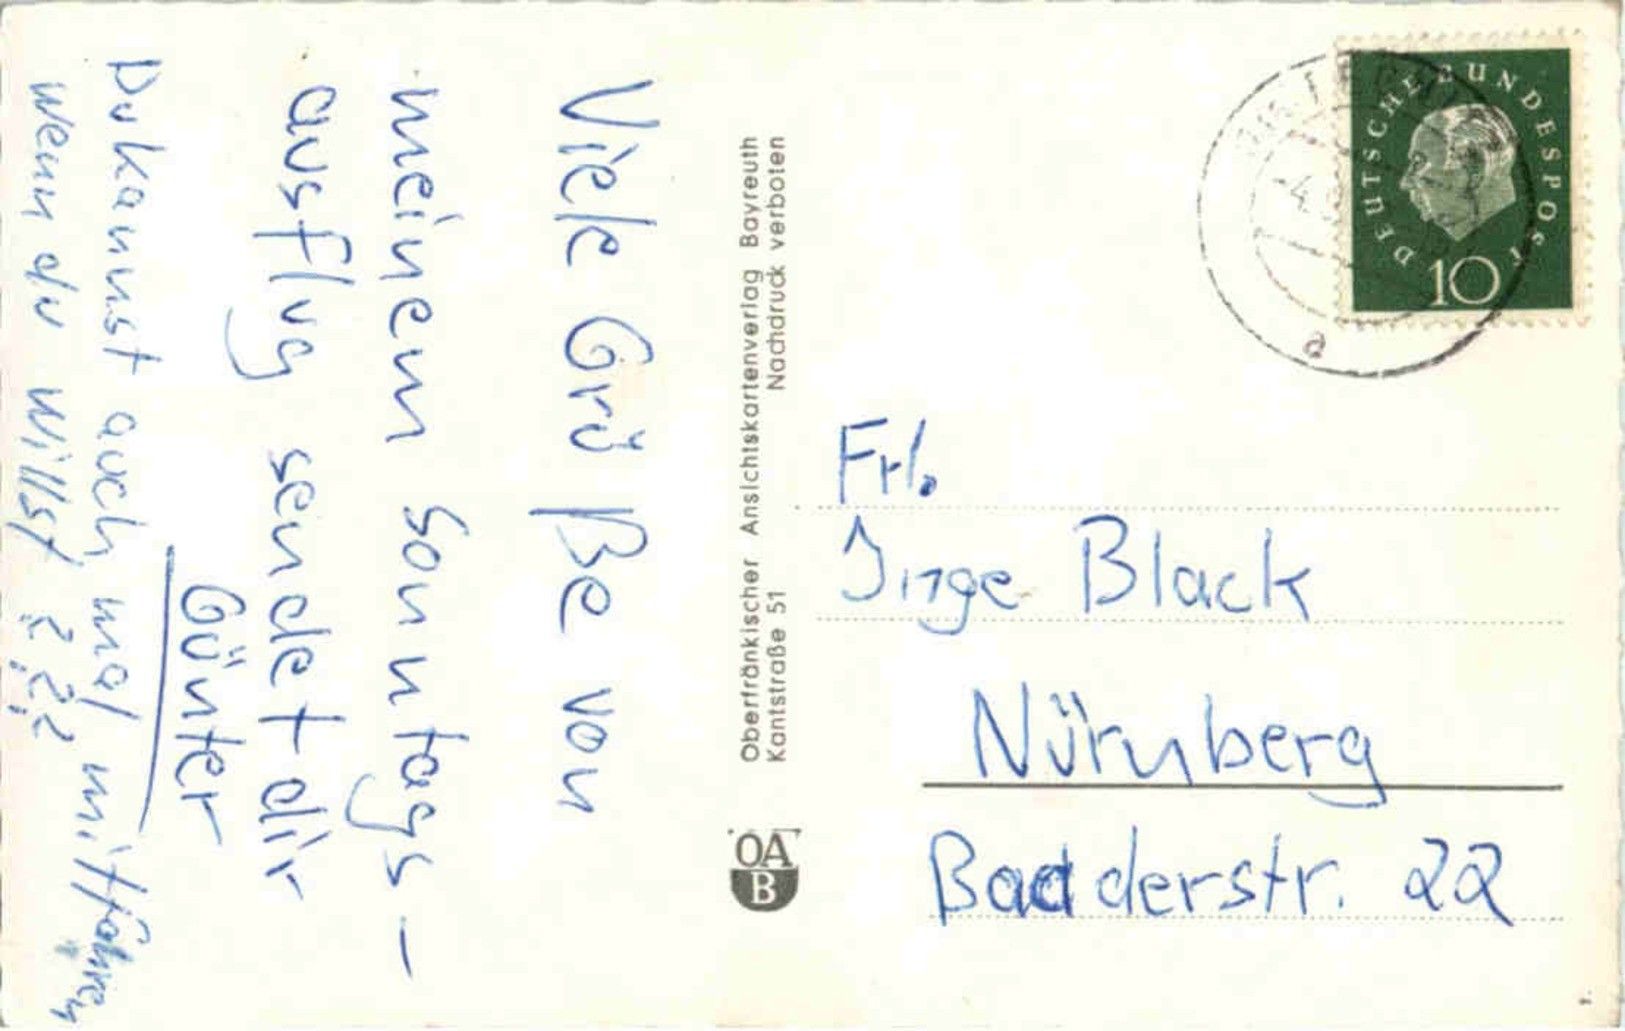 Viele Grüße von
meinem Sonntags-
ausflug sendet dir
Günter
Du kannst auch mal mitfahren
wenn du willst ???
Oberfränkischer Ansichtskartenverlag Bayreuth
Kantstraße 51 Nachdruck verboten
OA
B
DEUTSCHE BUNDESPOST
10
-4.
a
Frl.
Inge Black
Nürnberg
Baaderstr. 22